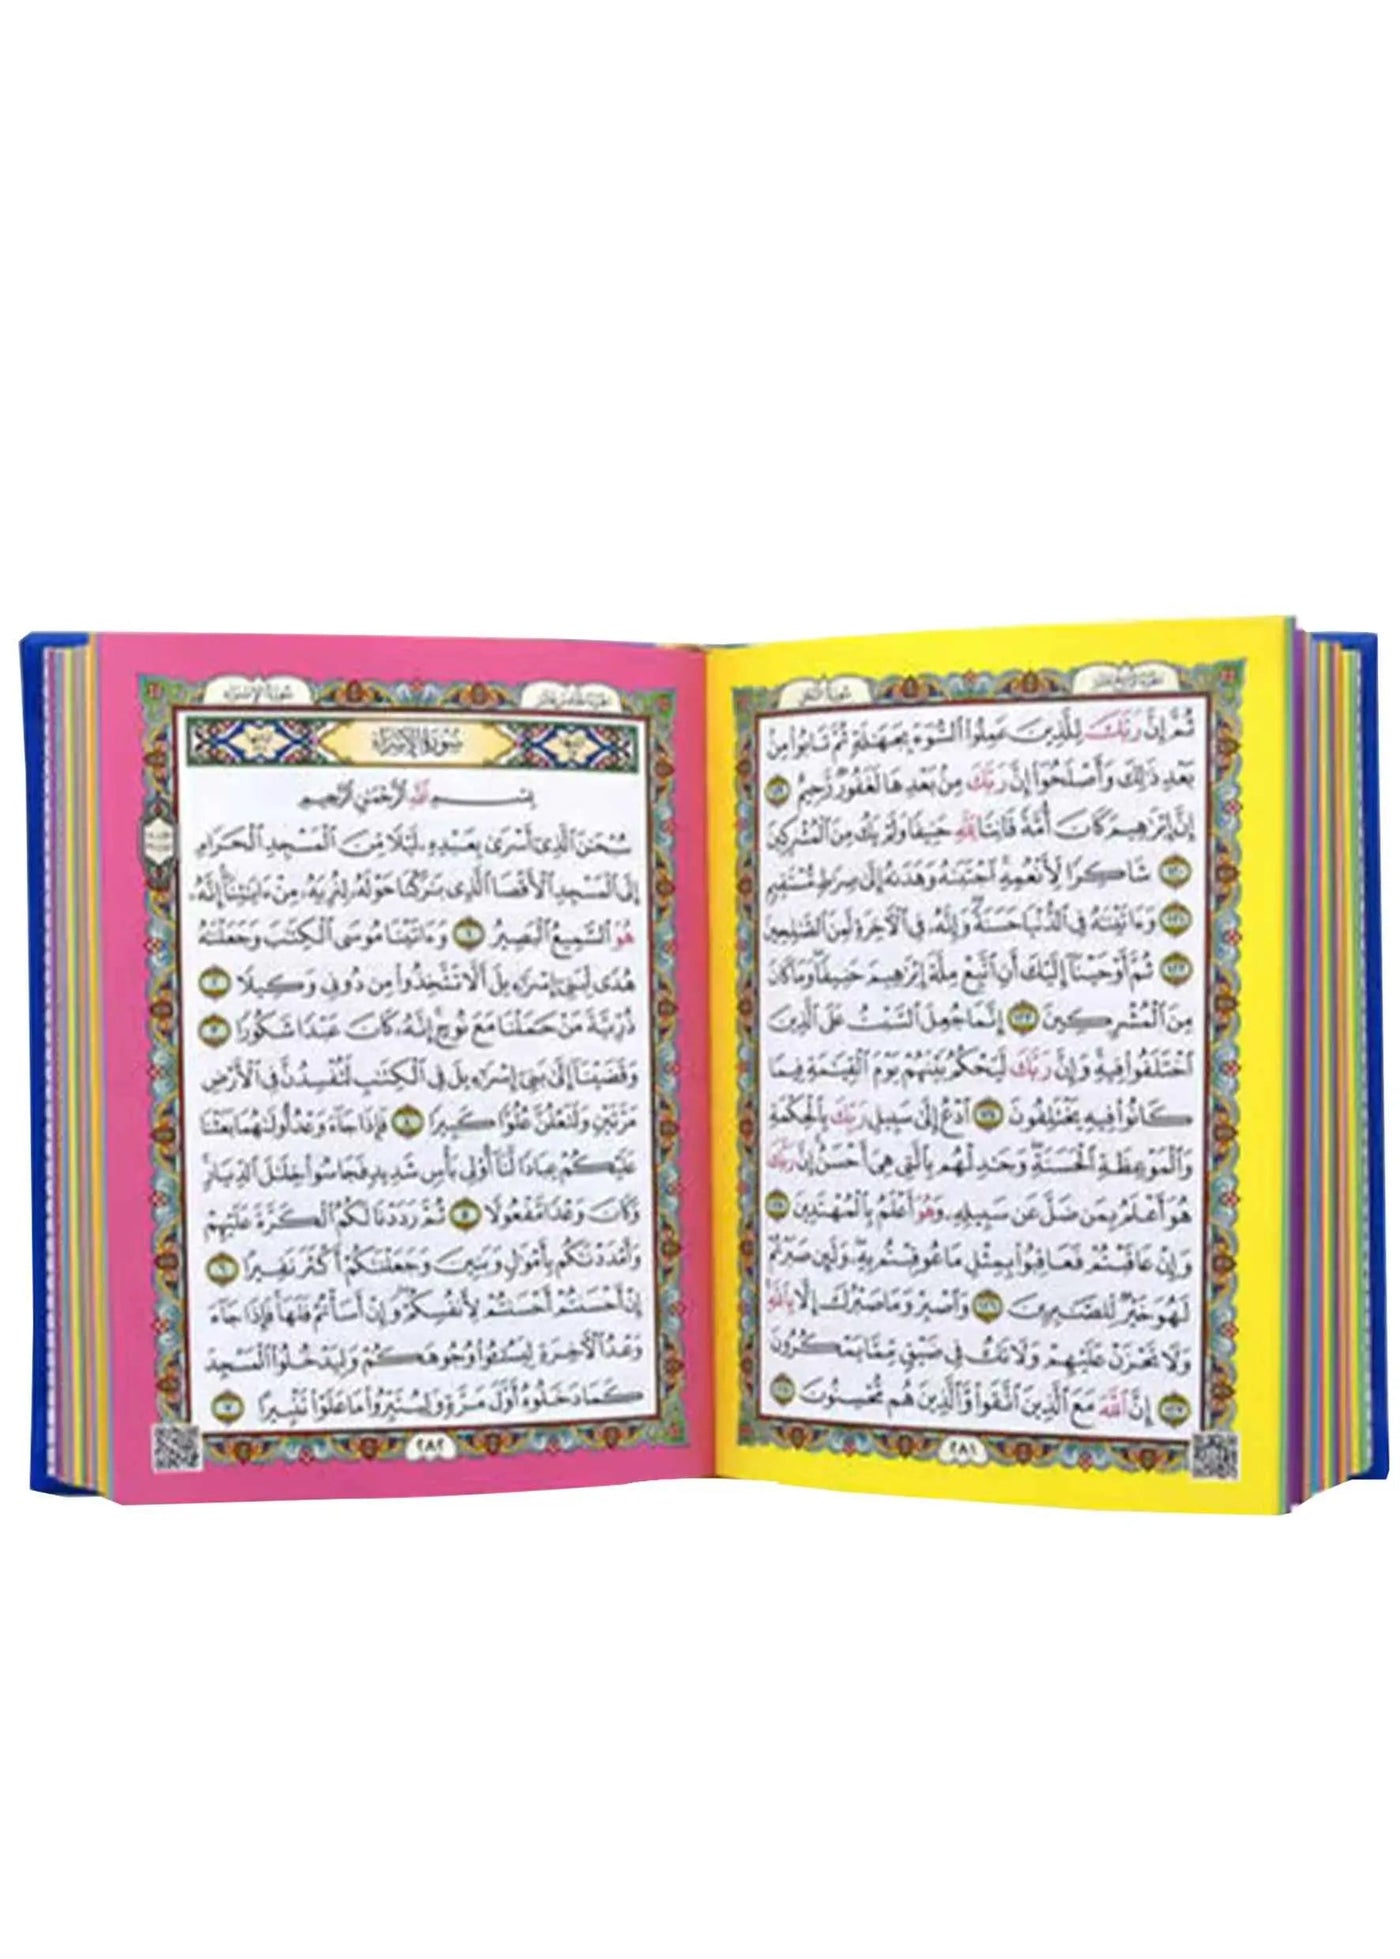 سورة النحل
الجزء الرابع عشر
ثُمَّ إِنَّ رَبَّكَ لِلَّذِينَ عَمِلُوا۟ ٱلسُّوٓءَ بِجَهَٰلَةٍ ثُمَّ تَابُوا۟ مِنۢ
بَعْدِ ذَٰلِكَ وَأَصْلَحُوٓا۟ إِنَّ رَبَّكَ مِنۢ بَعْدِهَا لَغَفُورٌ رَّحِيمٌ ١١٩
إِنَّ إِبْرَٰهِيمَ كَانَ أُمَّةً قَانِتًا لِّلَّهِ حَنِيفًا وَلَمْ يَكُ مِنَ ٱلْمُشْرِكِينَ
١٢٠ شَاكِرًا لِّأَنْعُمِهِ ٱجْتَبَىٰهُ وَهَدَىٰهُ إِلَىٰ صِرَٰطٍ مُّسْتَقِيمٍ
١٢١ وَءَاتَيْنَٰهُ فِى ٱلدُّنْيَا حَسَنَةً وَإِنَّهُۥ فِى ٱلْءَاخِرَةِ لَمِنَ ٱلصَّٰلِحِينَ
١٢٢ ثُمَّ أَوْحَيْنَآ إِلَيْكَ أَنِ ٱتَّبِعْ مِلَّةَ إِبْرَٰهِيمَ حَنِيفًا وَمَا كَانَ
مِنَ ٱلْمُشْرِكِينَ ١٢٣ إِنَّمَا جُعِلَ ٱلسَّبْتُ عَلَى ٱلَّذِينَ
ٱخْتَلَفُوا۟ فِيهِ وَإِنَّ رَبَّكَ لَيَحْكُمُ بَيْنَهُمْ يَوْمَ ٱلْقِيَٰمَةِ فِيمَا
كَانُوا۟ فِيهِ يَخْتَلِفُونَ ١٢٤ ٱدْعُ إِلَىٰ سَبِيلِ رَبِّكَ بِٱلْحِكْمَةِ
وَٱلْمَوْعِظَةِ ٱلْحَسَنَةِ وَجَٰدِلْهُم بِٱلَّتِى هِىَ أَحْسَنُ إِنَّ رَبَّكَ
هُوَ أَعْلَمُ بِمَن ضَلَّ عَن سَبِيلِهِۦ وَهُوَ أَعْلَمُ بِٱلْمُهْتَدِينَ ١٢٥
وَإِنْ عَاقَبْتُمْ فَعَاقِبُوا۟ بِمِثْلِ مَا عُوقِبْتُم بِهِۦ وَلَئِن صَبَرْتُمْ
لَهُوَ خَيْرٌ لِّلصَّٰبِرِينَ ١٢٦ وَٱصْبِرْ وَمَا صَبْرُكَ إِلَّا بِٱللَّهِ
وَلَا تَحْزَنْ عَلَيْهِمْ وَلَا تَكُ فِى ضَيْقٍ مِّمَّا يَمْكُرُونَ
١٢٧ إِنَّ ٱللَّهَ مَعَ ٱلَّذِينَ ٱتَّقَوا۟ وَّٱلَّذِينَ هُم مُّحْسِنُونَ ١٢٨
٢٨١
الجزء الخامس عشر
سورة الإسراء
سورة الإسراء
بِسْمِ ٱللَّهِ ٱلرَّحْمَٰنِ ٱلرَّحِيمِ
سُبْحَٰنَ ٱلَّذِىٓ أَسْرَىٰ بِعَبْدِهِۦ لَيْلًا مِّنَ ٱلْمَسْجِدِ ٱلْحَرَامِ
إِلَى ٱلْمَسْجِدِ ٱلْأَقْصَا ٱلَّذِى بَٰرَكْنَا حَوْلَهُۥ لِنُرِيَهُۥ مِنْ ءَايَٰتِنَآ إِنَّهُۥ
هُوَ ٱلسَّمِيعُ ٱلْبَصِيرُ ١ وَءَاتَيْنَا مُوسَى ٱلْكِتَٰبَ وَجَعَلْنَٰهُ
هُدًى لِّبَنِىٓ إِسْرَٰٓءِيلَ أَلَّا تَتَّخِذُوا۟ مِن دُونِى وَكِيلًا ٢
ذُرِّيَّةَ مَنْ حَمَلْنَا مَعَ نُوحٍ إِنَّهُۥ كَانَ عَبْدًا شَكُورًا ٣
وَقَضَيْنَآ إِلَىٰ بَنِىٓ إِسْرَٰٓءِيلَ فِى ٱلْكِتَٰبِ لَتُفْسِدُنَّ فِى ٱلْأَرْضِ
مَرَّتَيْنِ وَلَتَعْلُنَّ عُلُوًّا كَبِيرًا ٤ فَإِذَا جَآءَ وَعْدُ أُولَىٰهُمَا بَعَثْنَا
عَلَيْكُمْ عِبَادًا لَّنَآ أُو۟لِى بَأْسٍ شَدِيدٍ فَجَاسُوا۟ خِلَٰلَ ٱلدِّيَارِ
وَكَانَ وَعْدًا مَّفْعُولًا ٥ ثُمَّ رَدَدْنَا لَكُمُ ٱلْكَرَّةَ عَلَيْهِمْ
وَأَمْدَدْنَٰكُم بِأَمْوَٰلٍ وَبَنِينَ وَجَعَلْنَٰكُمْ أَكْثَرَ نَفِيرًا ٦
إِنْ أَحْسَنتُمْ أَحْسَنتُمْ لِأَنفُسِكُمْ وَإِنْ أَسَأْتُمْ فَلَهَا فَإِذَا جَآءَ
وَعْدُ ٱلْءَاخِرَةِ لِيَسُـۥٓـُٔوا۟ وُجُوهَكُمْ وَلِيَدْخُلُوا۟ ٱلْمَسْجِدَ
كَمَا دَخَلُوهُ أَوَّلَ مَرَّةٍ وَلِيُتَبِّرُوا۟ مَا عَلَوْا۟ تَتْبِيرًا ٧
٢٨٢